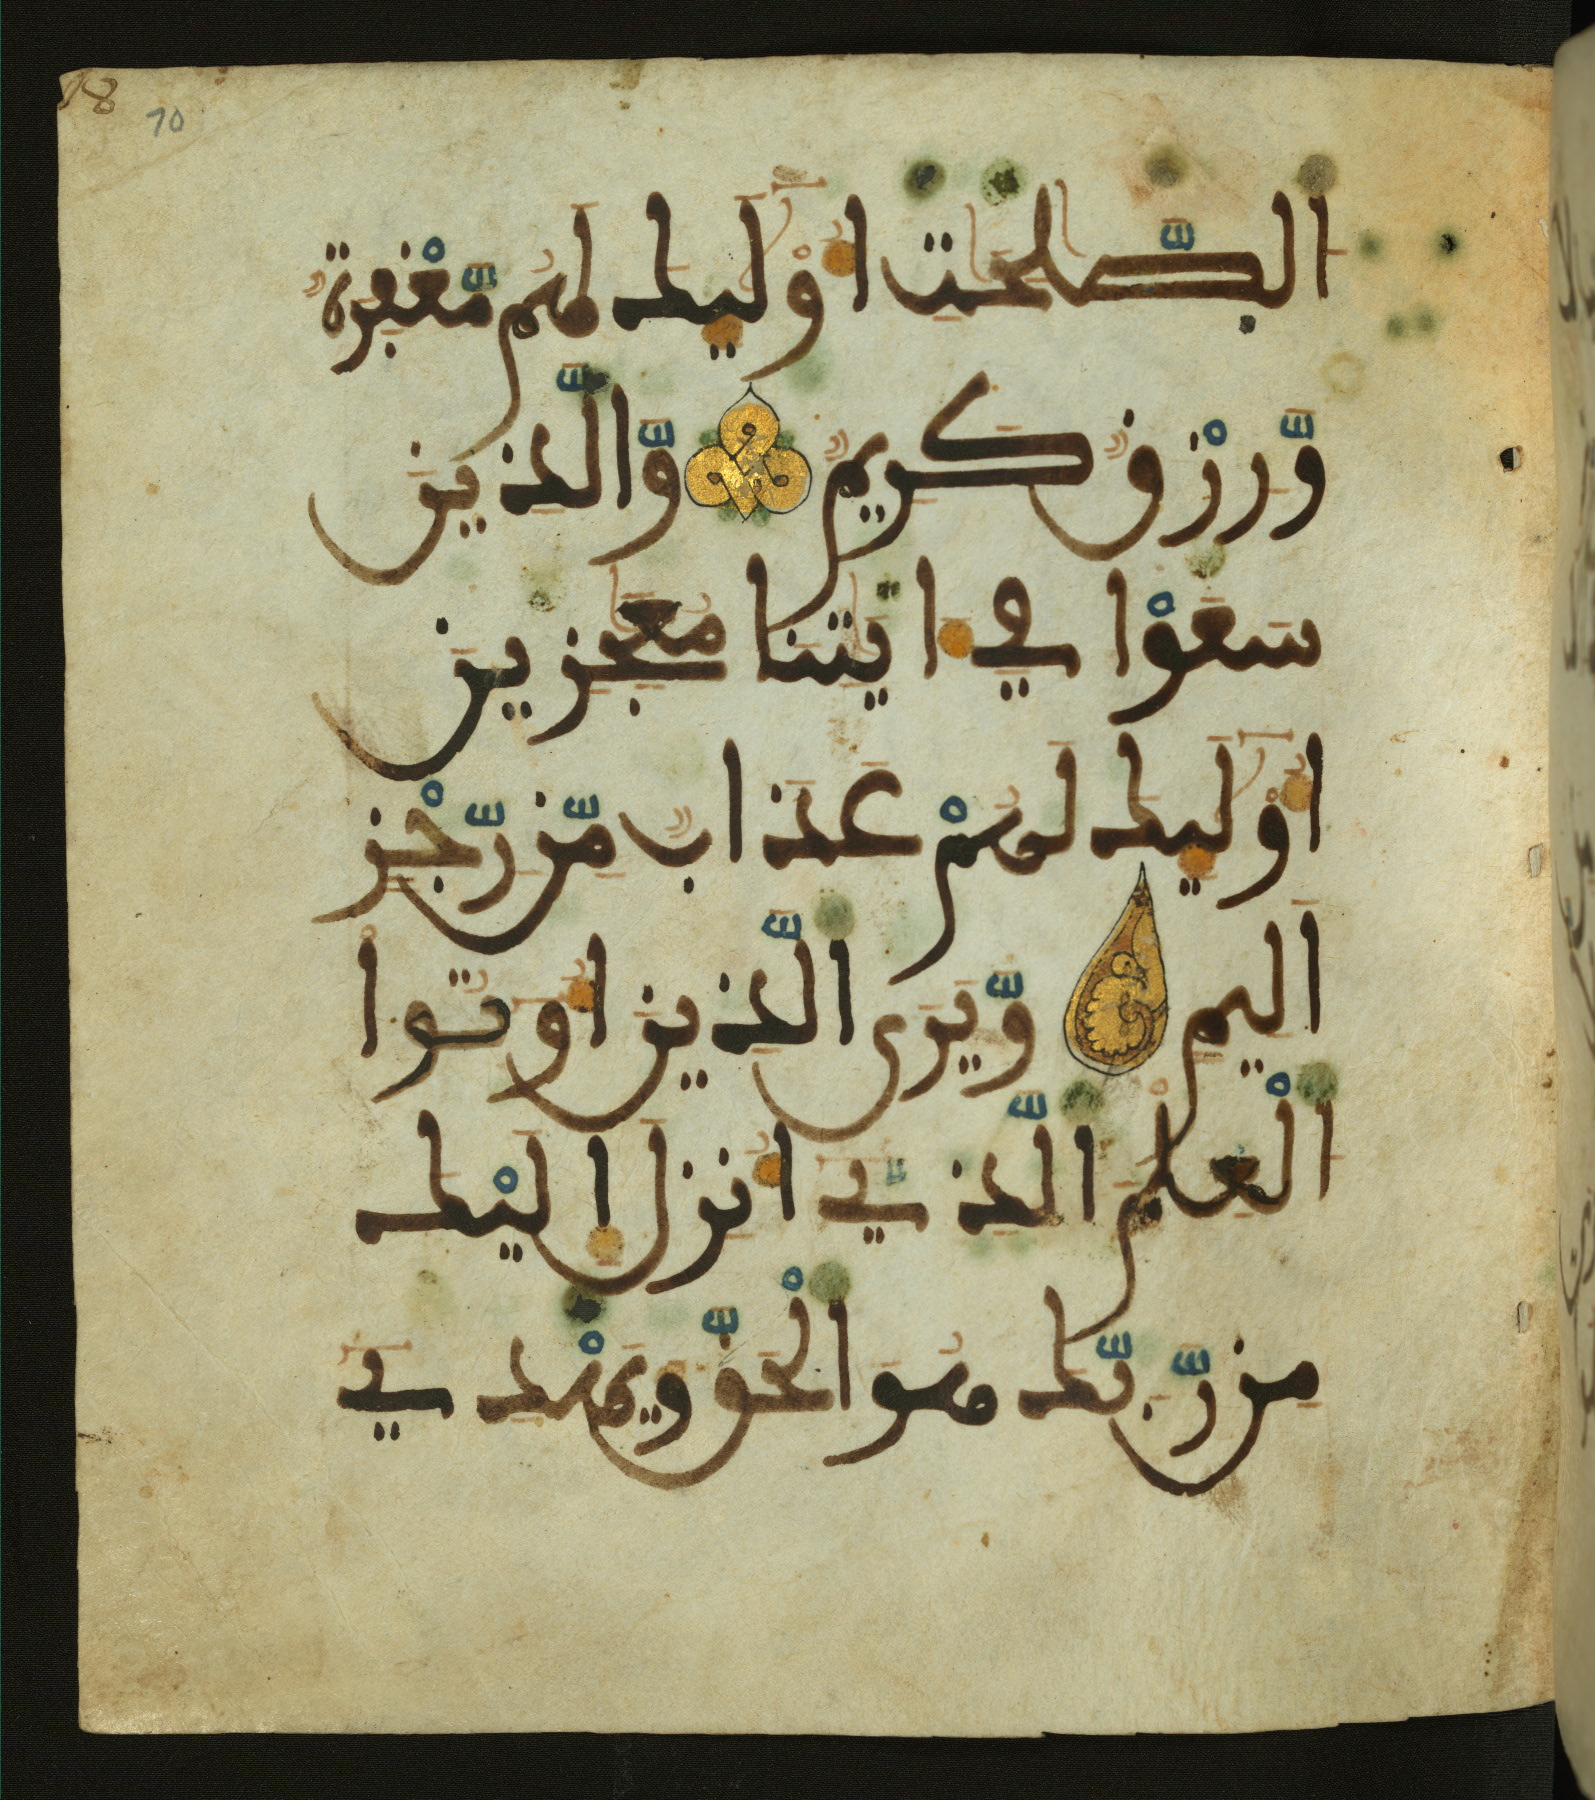 18
70
الصّٰلحٰت أوْلٰٓئك لهم مّغْفرة
وّرزْق كريم وّالّذين
سعوْا في ءايٰتنا معٰجزين
أوْلٰٓئك لهمْ عذاب مّن رّجْز
اليم وّيرى الّذين أوتوا
الْعلم الّذيٓ أنزل إليْك
من رّبّك هو الْحقّ ويهْديٓ